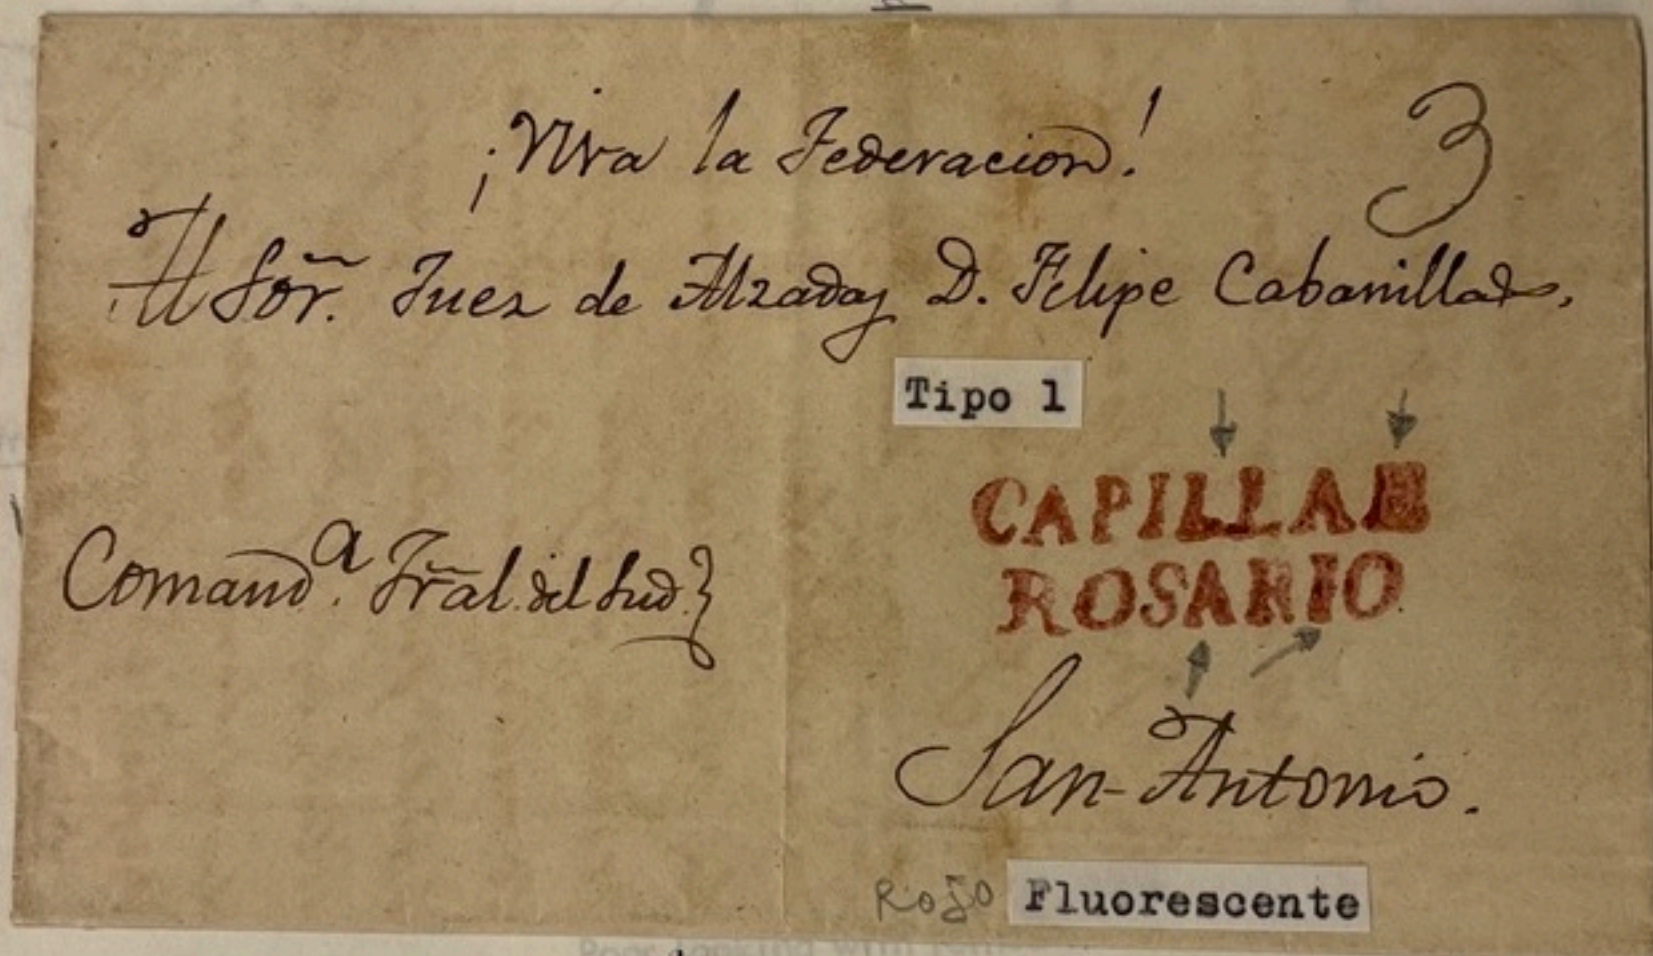 ¡Viva la Federacion!
3
Al Sōr. Juez de Alzadas D. Felipe Cabanillas.
Tipo 1
CAPILLAE
ROSARIO
Comandª. Gr̄al. del Sud.}
San-Antonio.
Rojo Fluorescente